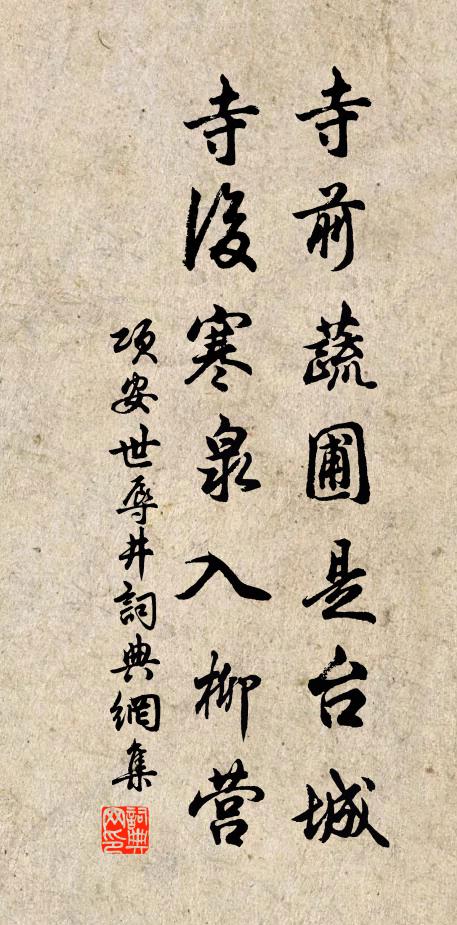 寺前蔬圃是台城
寺後寒泉入柳营
項安世辱井詞典網集
詞典网印